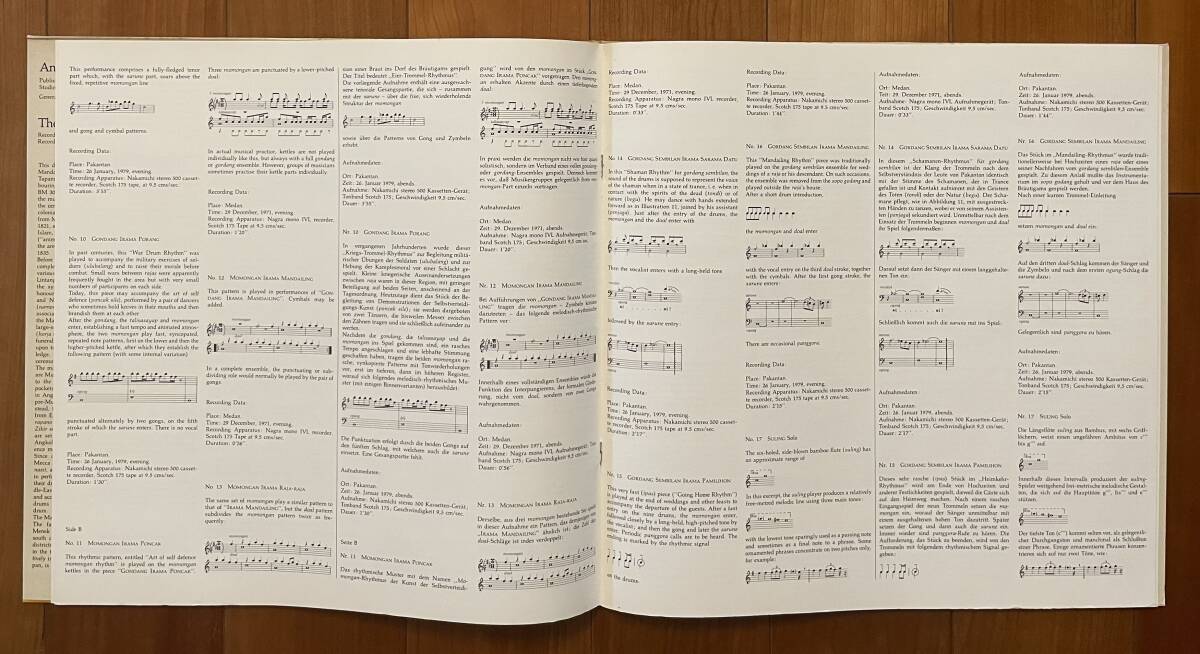 An
Public
Studies
Genera
The
Record
Record
This performance comprises a fully-fledged tenor
part which, with the sarune part, soars above the
fixed, repetitive momongan line
and gong and cymbal patterns.
Recording Data:
Place: Pakantan
Time: 26 January, 1979, evening.
Recording Apparatus: Nakamichi stereo 500 casset-
te recorder, Scotch 175 tape at 9.5 cms/sec.
Duration: 3'55".
No. 10 GONDANG IRAMA PORANG
In past centuries, this "War Drum Rhythm" was
played to accompany the military exercises of sol-
diers (ulubalang) and to raise their morale before
combat. Small wars between rajas were apparently
frequently fought in the area but with very small
numbers of participants on each side.
Today, this piece may accompany the art of self
defence (poncak silo), performed by a pair of dancers
who sometimes hold knives in their mouths and then
brandish them at each other.
After the gondang, the talisasayap and momongan
enter, establishing a fast tempo and animated atmos-
phere, the two momongan play fast, syncopated
repeated note patterns, first on the lower and then the
higher-pitched kettle, after which they establish the
following pattern (with some internal variation)
punctuated alternately by two gongs, on the fifth
stroke of which the sarune enters. There is no vocal
part.
Place: Pakantan.
Time: 26 January, 1979, evening.
Recording Apparatus: Nakamichi stereo 500 casset-
te recorder, Scotch 175 tape at 9.5 cms/sec.
Duration: 1'30".
Side B
No. 11 MOMONGAN IRAMA PONCAK
This rhythmic pattern, entitled "Art of self defence
momongan rhythm" is played on the momongan
kettles in the piece "GONDANG IRAMA PONCAK".
Three momongan are punctuated by a lower-pitched
doal:
In actual musical practice, kettles are not played
individually like this, but always with a full gondang
or gordang ensemble. However, groups of musicians
sometimes practise their kettle parts individually.
Recording Data:
Place: Medan
Time: 29 December, 1971, evening.
Recording Apparatus: Nagra mono IVL recorder,
Scotch 175 Tape at 9.5 cms/sec.
Duration: 1'20".
No. 12 MOMONGAN IRAMA MANDAILING
This pattern is played in performances of "GON-
DANG IRAMA MANDAILING". Cymbals may be
added.
In a complete ensemble, the punctuating or sub-
dividing role would normally be played by the pair of
gongs.
Recording Data:
Place: Medan.
Time: 29 December, 1971, evening.
Recording Apparatus: Nagra mono IVL recorder,
Scotch 175 Tape at 9.5 cms/sec.
Duration: 0'56".
No. 13 MOMONGAN IRAMA RAJA-RAJA
The same set of momongan play a similar pattern to
that of "IRAMA MANDAILING", but the doal pattern
subdivides the momongan pattern twice as fre-
quently.
sion einer Braut ins Dorf des Bräutigams gespielt.
Der Titel bedeutet „Eier-Trommel-Rhythmus".
Die vorliegende Aufnahme enthält eine ausgewach-
sene tenorale Gesangspartie, die sich – zusammen
mit der sarune – über die fixe, sich wiederholende
Struktur der momongan
sowie über die Patterns von Gong und Zymbeln
erhebt.
Aufnahmedaten:
Ort: Pakantan.
Zeit: 26. Januar 1979, abends.
Aufnahme: Nakamichi stereo 500 Kassetten-Gerät;
Tonband Scotch 175; Geschwindigkeit 9,5 cm/sec.
Dauer: 3'55".
Nr. 10 GONDANG IRAMA PORANG
In vergangenen Jahrhunderten wurde dieser
„Kriegs-Trommel-Rhythmus" zur Begleitung militä-
rischer Übungen der Soldaten (ulubalang) und zur
Hebung der Kampfesmoral vor einer Schlacht ge-
spielt. Kleine kriegerische Auseinandersetzungen
zwischen rajas waren in dieser Region, mit geringer
Beteiligung auf beiden Seiten, anscheinend an der
Tagesordnung. Heutzutage dient das Stück der Be-
gleitung von Demonstrationen der Selbstverteidi-
gungs-Kunst (poncak silo); sie werden dargeboten
von zwei Tänzern, die bisweilen Messer zwischen
den Zähnen tragen und sie schließlich aufeinander zu
werfen.
Nachdem die gondang, die talisasayap und die
momongan ins Spiel gekommen sind, ein rasches
Tempo angeschlagen und eine lebhafte Stimmung
geschaffen haben, tragen die beiden momongan ra-
sche, synkopierte Patterns mit Tonwiederholungen
vor, erst im tieferen, dann im höheren Register,
worauf sich folgendes melodisch-rhythmisches Mu-
ster (mit einigen Binnenvarianten) herausbildet:
Die Punktuation erfolgt durch die beiden Gongs auf
den fünften Schlag, mit welchem auch die sarune
einsetzt. Eine Gesangspartie fehlt.
Aufnahmedaten:
Ort: Pakantan.
Zeit: 26. Januar 1979, abends.
Aufnahme: Nakamichi stereo 500 Kassetten-Gerät;
Tonband Scotch 175; Geschwindigkeit 9,5 cm/sec.
Dauer: 1'30".
Seite B
Nr. 11 MOMONGAN IRAMA PONCAK
Das rhythmische Muster mit dem Namen „Mo-
mongan-Rhythmus der Kunst der Selbstverteidi-
gung" wird von den momongan im Stück „GON-
DANG IRAMA PONCAK" vorgetragen. Drei momong-
an erhalten Akzente durch einen tieferliegenden
doal:
In praxi werden die momongan nicht wie hier quasi
solistisch, sondern im Verband eines vollen gondang-
oder gordang-Ensembles gespielt. Dennoch kommt
es vor, daß Musikergruppen gelegentlich ihren mo-
mongan-Part einzeln vortragen.
Aufnahmedaten:
Ort: Medan.
Zeit: 29. Dezember 1971, abends.
Aufnahme: Nagra mono IVL Aufnahmegerät; Ton-
band Scotch 175; Geschwindigkeit 9,5 cm/sec.
Dauer: 1'20".
Nr. 12 MOMONGAN IRAMA MANDAILING
Bei Aufführungen von „GONDANG IRAMA MANDAI-
LING" tragen die momongan – Zymbeln können
dazutreten – das folgende melodisch-rhythmische
Pattern vor:
Innerhalb eines vollständigen Ensembles würde die
Funktion des Interpungierens, der formalen Gliede-
rung, nicht vom doal, sondern von zwei Gongs
wahrgenommen.
Aufnahmedaten:
Ort: Medan.
Zeit: 29. Dezember 1971, abends.
Aufnahme: Nagra mono IVL Aufnahmegerät; Ton-
band Scotch 175; Geschwindigkeit 9,5 cm/sec.
Dauer: 0'56".
Nr. 13 MOMONGAN IRAMA RAJA-RAJA
Derselbe, aus drei momongan bestehende Set spielt
in dieser Aufnahme ein Pattern, das demjenigen von
„IRAMA MANDAILING" ähnlich ist; die Zahl der
doal-Schläge ist indes verdoppelt:
Recording Data:
Place: Medan.
Time: 29 December, 1971, evening.
Recording Apparatus: Nagra mono IVL recorder,
Scotch 175 tape at 9.5 cms/sec.
Duration: 0'33".
No 14 GORDANG SEMBILAN IRAMA SARAMA DATU
In this "Shaman Rhythm" for gordang sembilan, the
sound of the drums is supposed to represent the voice
of the shaman when in a state of trance, i.e. when in
contact with the spirits of the dead (tondi) or of
nature (begu). He may dance with hands extended
toward as in Illustration 11, joined by his assistant
(panjaga). Just after the entry of the drums, the
momongan and the doal enter with
Then the vocalist enters with a long-held tone
followed by the sarune entry:
Recording Data:
Place: Pakantan.
Time: 26 January, 1979, evening.
Recording Apparatus: Nakamichi stereo 500 casset-
te recorder, Scotch 175 tape at 9.5 cms/sec.
Duration: 2'17"
No. 15 GORDANG SEMBILAN IRAMA PAMULIHON
This very fast (ipas) piece ("Going Home Rhythm")
is played at the end of weddings and other feasts to
accompany the departure of the guests. After a last
entry on the nine drums, the momongan enter,
followed closely by a long-held, high-pitched tone by
the vocalist, and then the gong and later the sarune
enter. Periodic panggora calls are to be heard. The
ending is marked by the rhythmic signal
on the drums.
Recording Data:
Place: Pakantan.
Time: 26 January, 1979, evening.
Recording Apparatus: Nakamichi stereo 500 casset-
te recorder, Scotch 175 tape at 9.5 cms/sec.
Duration: 1'44".
No. 16 GORDANG SEMBILAN IRAMA MANDAILING
This "Mandailing Rhythm" piece was traditionally
played on the gordang sembilan ensemble for wed-
dings of a raja or his descendant. On such occasions,
the ensemble was removed from the sopo godang and
played outside the raja's house.
After a short drum introduction,
the momongan and doal enter
with the vocal entry on the third doal stroke, together
with the cymbals. After the first gong stroke, the
sarune enters:
There are occasional panggora.
Recording Data:
Place: Pakantan.
Time: 26 January, 1979, evening.
Recording Apparatus: Nakamichi stereo 500 casset-
te recorder, Scotch 175 tape at 9.5 cms/sec.
Duration: 2'15".
No. 17 SULING Solo
The six-holed, side-blown bamboo flute (suling) has
an approximate range of
In this excerpt, the suling player produces a relatively
free-metred melodic line using three main tones:
with the lowest tone sparingly used as a passing note
and sometimes as a final note to a phrase. Some
ornamented phrases concentrate on two pitches only,
for example:
Aufnahmedaten:
Ort: Medan.
Zeit: 29. Dezember 1971, abends.
Aufnahme: Nagra mono IVL Aufnahmegerät; Ton-
band Scotch 175; Geschwindigkeit 9,5 cm/sec.
Dauer: 0'33".
Nr. 14 GORDANG SEMBILAN IRAMA SARAMA DATU
In diesem „Schamanen-Rhythmus" für gordang
sembilan ist der Klang der Trommeln nach dem
Selbstverständnis der Leute von Pakantan identisch
mit der Stimme des Schamanen, der in Trance
gefallen ist und Kontakt aufnimmt mit den Geistern
des Toten (tondi) oder der Natur (begu). Der Scha-
mane pflegt, wie in Abbildung 11, mit ausgestreck-
ten Händen zu tanzen, wobei er von seinem Assisten-
ten (panjaga) sekundiert wird. Unmittelbar nach dem
Einsatz der Trommeln beginnen momongan und doal
ihr Spiel folgendermaßen:
Darauf setzt dann der Sänger mit einem langgehalte-
nen Ton ein:
Schließlich kommt auch die sarune mit ins Spiel:
Aufnahmedaten:
Ort: Pakantan.
Zeit: 26. Januar 1979, abends.
Aufnahme: Nakamichi stereo 500 Kassetten-Gerät;
Tonband Scotch 175; Geschwindigkeit 9,5 cm/sec.
Dauer: 2'17".
Nr. 15 GORDANG SEMBILAN IRAMA PAMULIHON
Dieses sehr rasche (ipas) Stück im „Heimkehr-
Rhythmus" wird am Ende von Hochzeiten und
anderen Festlichkeiten gespielt, derweil die Gäste sich
auf den Heimweg machen. Nach einem raschen
Eingangsspiel der neun Trommeln setzen die mo-
mongan ein, worauf der Sänger unmittelbar mit
einem ausgehaltenen hohen Ton dazutritt. Später
setzen der Gong und dann auch die sarune ein.
Immer wieder sind panggora-Rufe zu hören. Die
Aufforderung, das Stück zu beenden, wird von den
Trommeln mit folgendem rhythmischen Signal ge-
geben:
Aufnahmedaten:
Ort: Pakantan.
Zeit: 26. Januar 1979, abends.
Aufnahme: Nakamichi stereo 500 Kassetten-Gerät;
Tonband Scotch 175; Geschwindigkeit 9,5 cm/sec.
Dauer: 1'44".
Nr. 16 GORDANG SEMBILAN IRAMA MANDAILING
Das Stück im „Mandailing-Rhythmus" wurde tradi-
tionellerweise bei Hochzeiten eines raja oder eines
seiner Nachfahren vom gordang sembilan-Ensemble
gespielt. Zu diesem Anlaß mußte das Instrumenta-
rium im sopo godang geholt und vor dem Haus des
Bräutigams gespielt werden.
Nach einer kurzen Trommel-Einleitung
setzen momongan und doal ein:
Auf den dritten doal-Schlag kommen der Sänger und
die Zymbeln und nach dem ersten ogung-Schlag die
sarune dazu:
Gelegentlich sind panggora zu hören.
Aufnahmedaten:
Ort: Pakantan.
Zeit: 26. Januar 1979, abends.
Aufnahme: Nakamichi stereo 500 Kassetten-Gerät;
Tonband Scotch 175; Geschwindigkeit 9,5 cm/sec.
Dauer: 2'15".
Nr. 17 SULING Solo
Die Längsflöte suling aus Bambus, mit sechs Griff-
löchern, weist einen ungefähren Ambitus von c''
bis g''' auf.
Innerhalb dieses Intervalls produziert der suling-
Spieler weitgehend frei-metrische melodische Gestal-
ten, die sich auf die Haupttöne
stützen.
Der tiefste Ton (c'') kommt selten vor, als gelegentli-
cher Durchgangston und manchmal als Schlußton
einer Phrase. Einige ornamentierte Phrasen konzen-
trieren sich auf nur zwei Töne, wie: